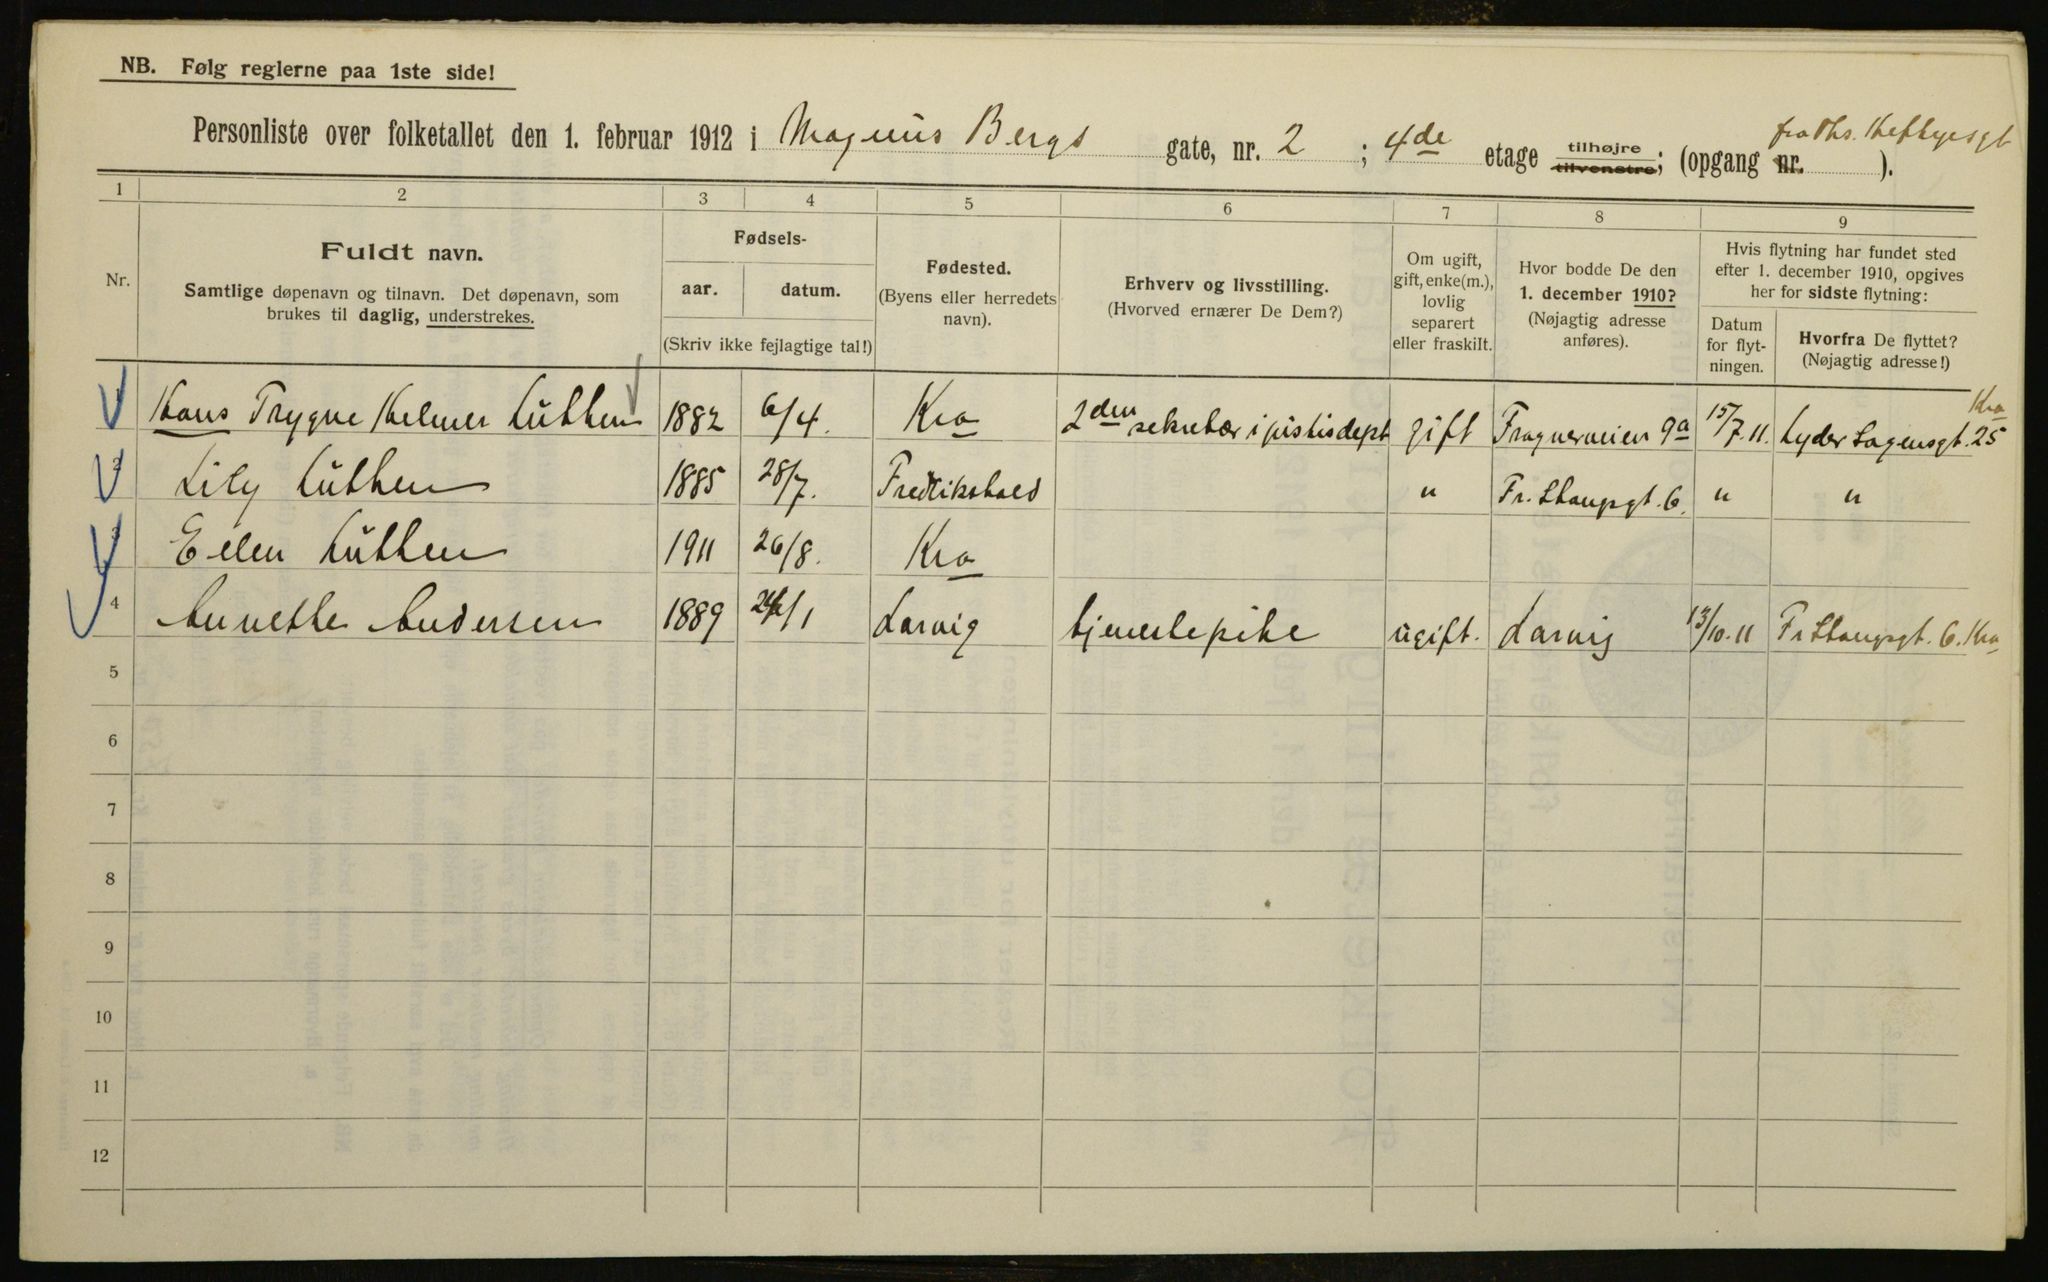 NB. Følg reglerne paa 1ste side!
Personliste over folketallet den 1. februar 1912 i Magnus Bergs gate, nr. 2 ; 4de etage tilhøjre tilvenstre; (opgang nr. fra Ths. Heftyesgt ).
1 2 3 4 5 6 7 8 9
Nr.
Fuldt navn.
Samtlige døpenavn og tilnavn. Det døpenavn, som
brukes til daglig, understrekes.
Fødsels-
aar. datum.
(Skriv ikke fejlagtige tal!)
Fødested.
(Byens eller herredets
navn).
Erhverv og livsstilling.
(Hvorved ernærer De Dem?)
Om ugift,
gift, enke(m.),
lovlig
separert
eller fraskilt.
Hvor bodde De den
1. december 1910?
(Nøjagtig adresse
anføres).
Hvis flytning har fundet sted
efter 1. december 1910, opgives
her for sidste flytning:
Datum
for flyt-
ningen.
Hvorfra De flyttet?
(Nøjagtig adresse!)
1 Hans Trygve Helmer Lütken 1882 6/4. Kra 2den sekretær i justisdept gift Frognerveien 9a 15/7.11. Lyder Sagensgt. 25 Kra
2 Lily Lütken 1885 28/7. Fredrikshald " Fr. Stangsgt. 6. " "
3 Ellen Lütken 1911 26/8. Kra
4 Annethe Andersen 1889 /1 Larvig tjenestepike ugift. Larvig 13/10.11 Fr Stangsgt. 6. Kra
5
6
7
8
9
10
11
12